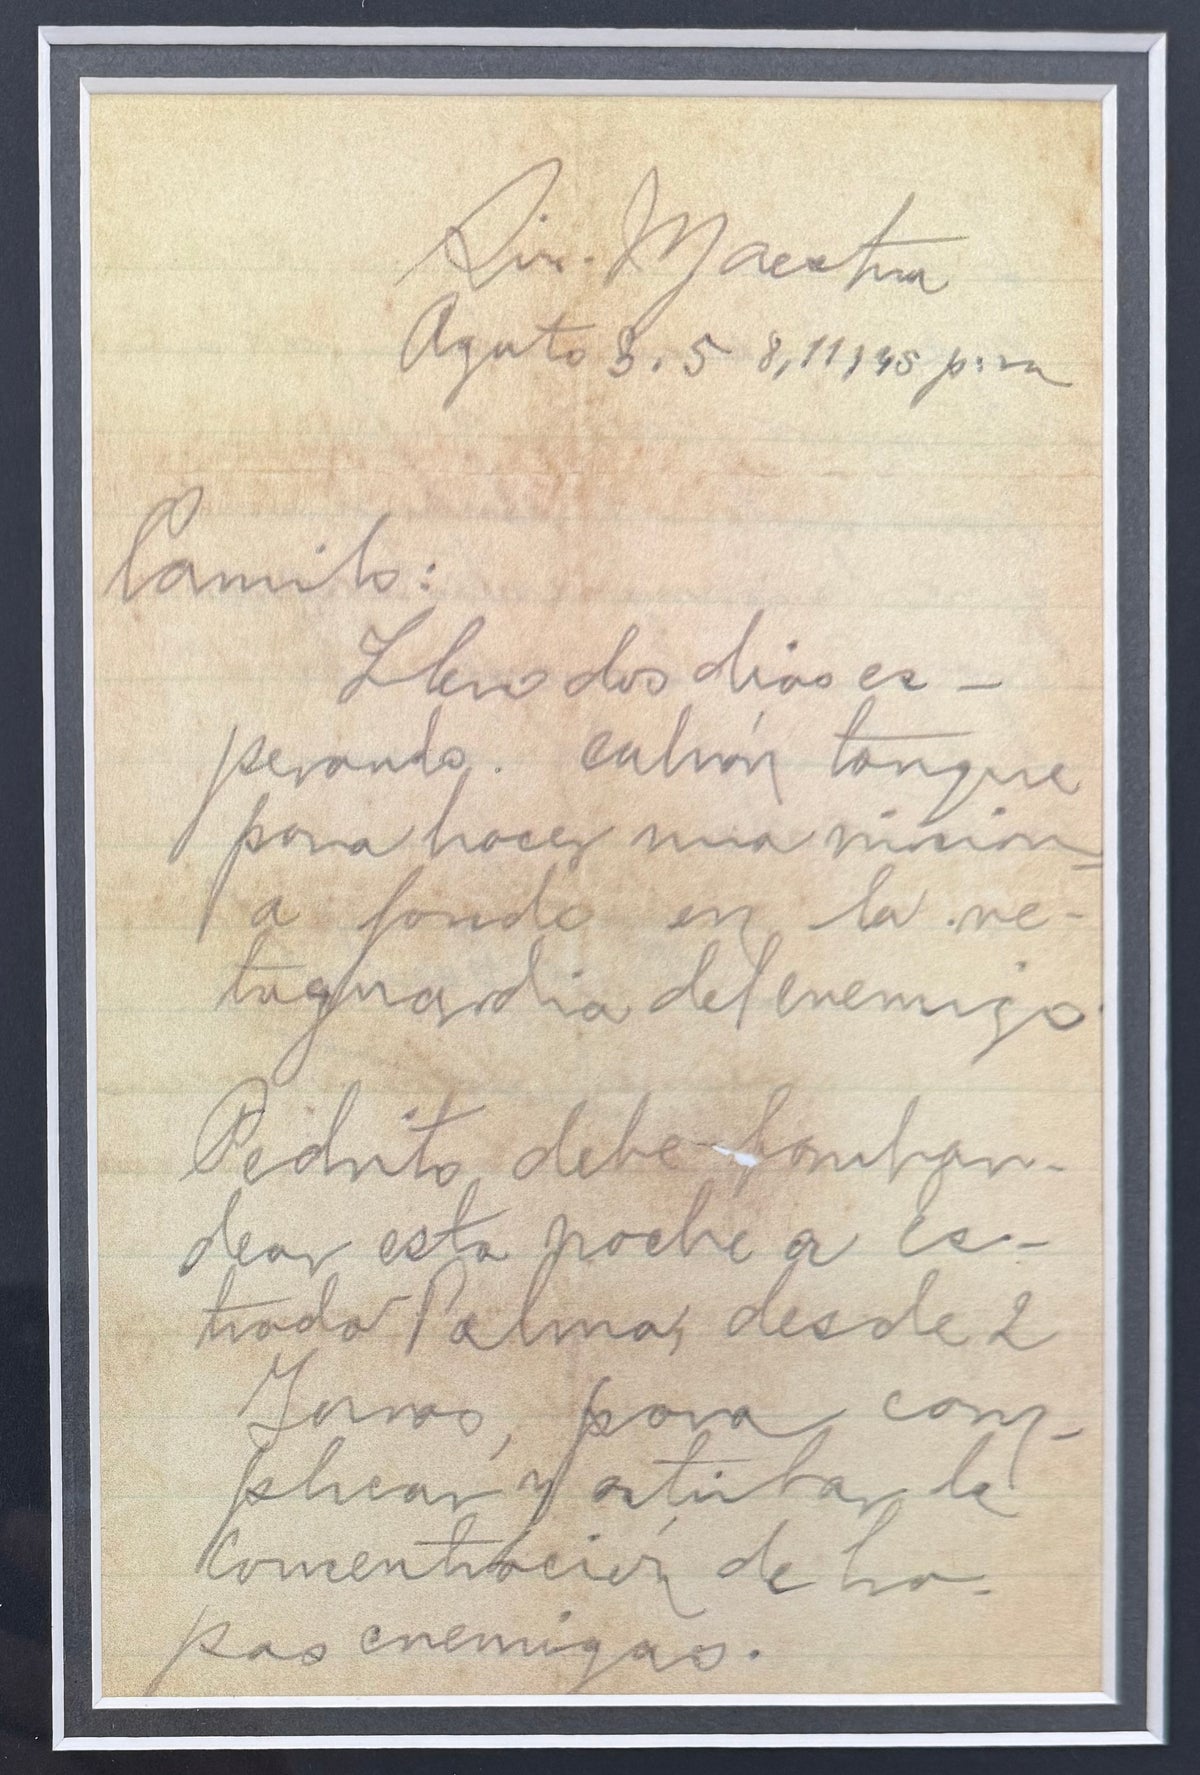 Sierra Maestra
Agosto 3. 58, 11,45 p.m
Camilo:
Llevo dos dias es-
perando. camión tanque
para hacer una misión
a fondo en la re-
taguardia del enemigo.
Pedrito debe bombar-
dear esta noche a Es-
trada Palma, desde
Jarnas, para com-
plicar y la
concentración de tro-
pas enemigas.